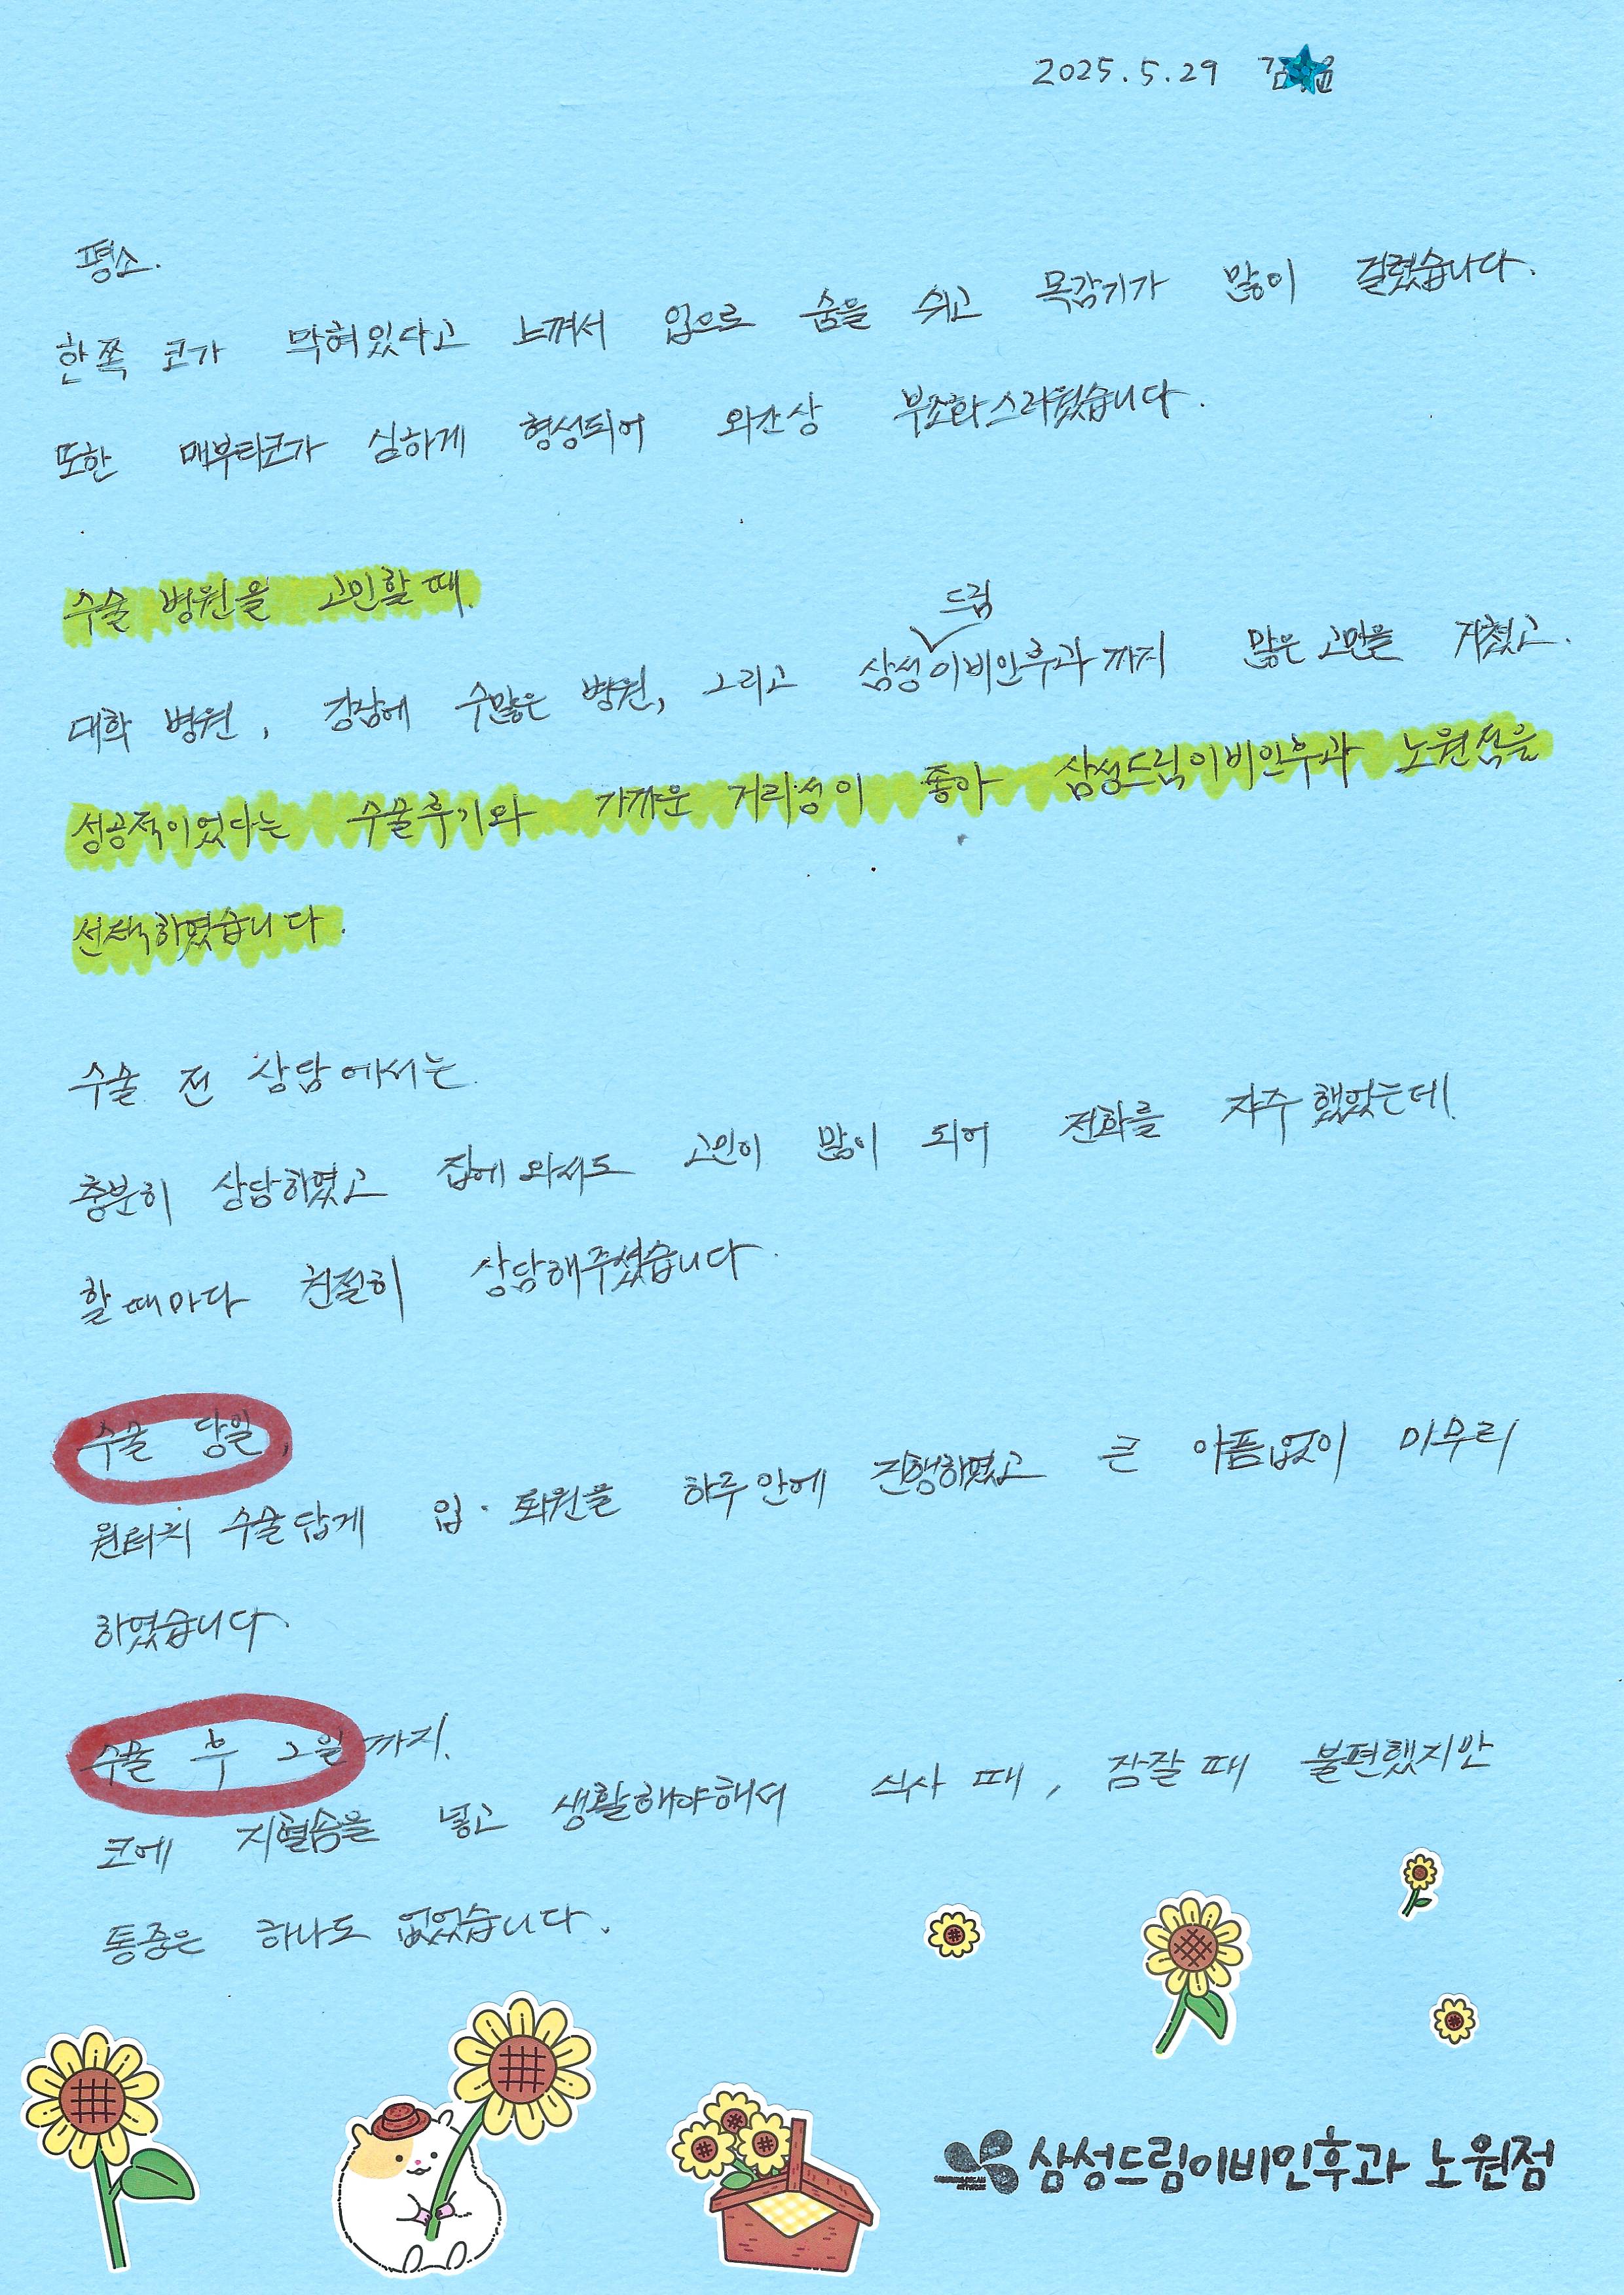 2025.5.29 김
평소.
한쪽 코가 막혀있다고 느껴서 입으로 숨을 쉬고 목감기가 많이 걸렸습니다.
또한 매부리코가 심하게 형성되어 외관상 부조화스러웠습니다.
수술 병원을 고민할 때.
대학 병원, 강남에 수많은 병원, 그리고 삼성드림이비인후과까지 많은 고민을 거쳤고.
성공적이었다는 수술후기와 가까운 거리성이 좋아 삼성드림이비인후과 노원점을
선택하였습니다.
수술 전 상담에서는
충분히 상담하였고 집에 와서도 고민이 많이 되어 전화를 자주 했었는데.
할 때마다 친절히 상담해주셨습니다.
수술 당일,
원터치 수술답게 입·퇴원을 하루안에 진행하였고 큰 아픔없이 마무리
하였습니다.
수술 후 2일까지.
코에 지혈솜을 넣고 생활해야해서 식사 때, 잠잘 때 불편했지만
통증은 하나도 없었습니다.
삼성드림이비인후과 노원점